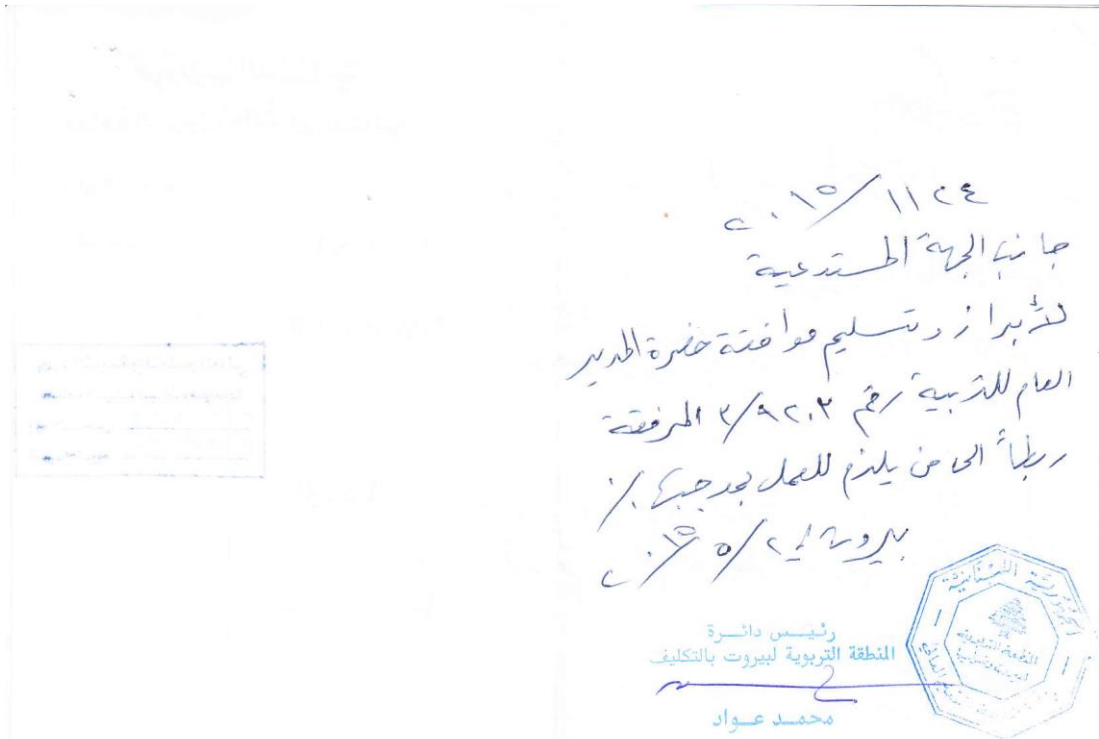 ٢٠١٥/١١٢٤
جانب الجهة المستدعية
للأبراز وتسليم موافقة حضرة المدير
العام للتربية رقم ٣/٩٢٠٣ المرفقة
ربطاً الى من يلزم للعمل بموجبها ./.
بيروت في ٢/٥/٢٠١٥
الجمهورية اللبنانية
المنطقة التربوية
رئيس دائرة
المنطقة التربوية لبيروت بالتكليف
محمد عواد